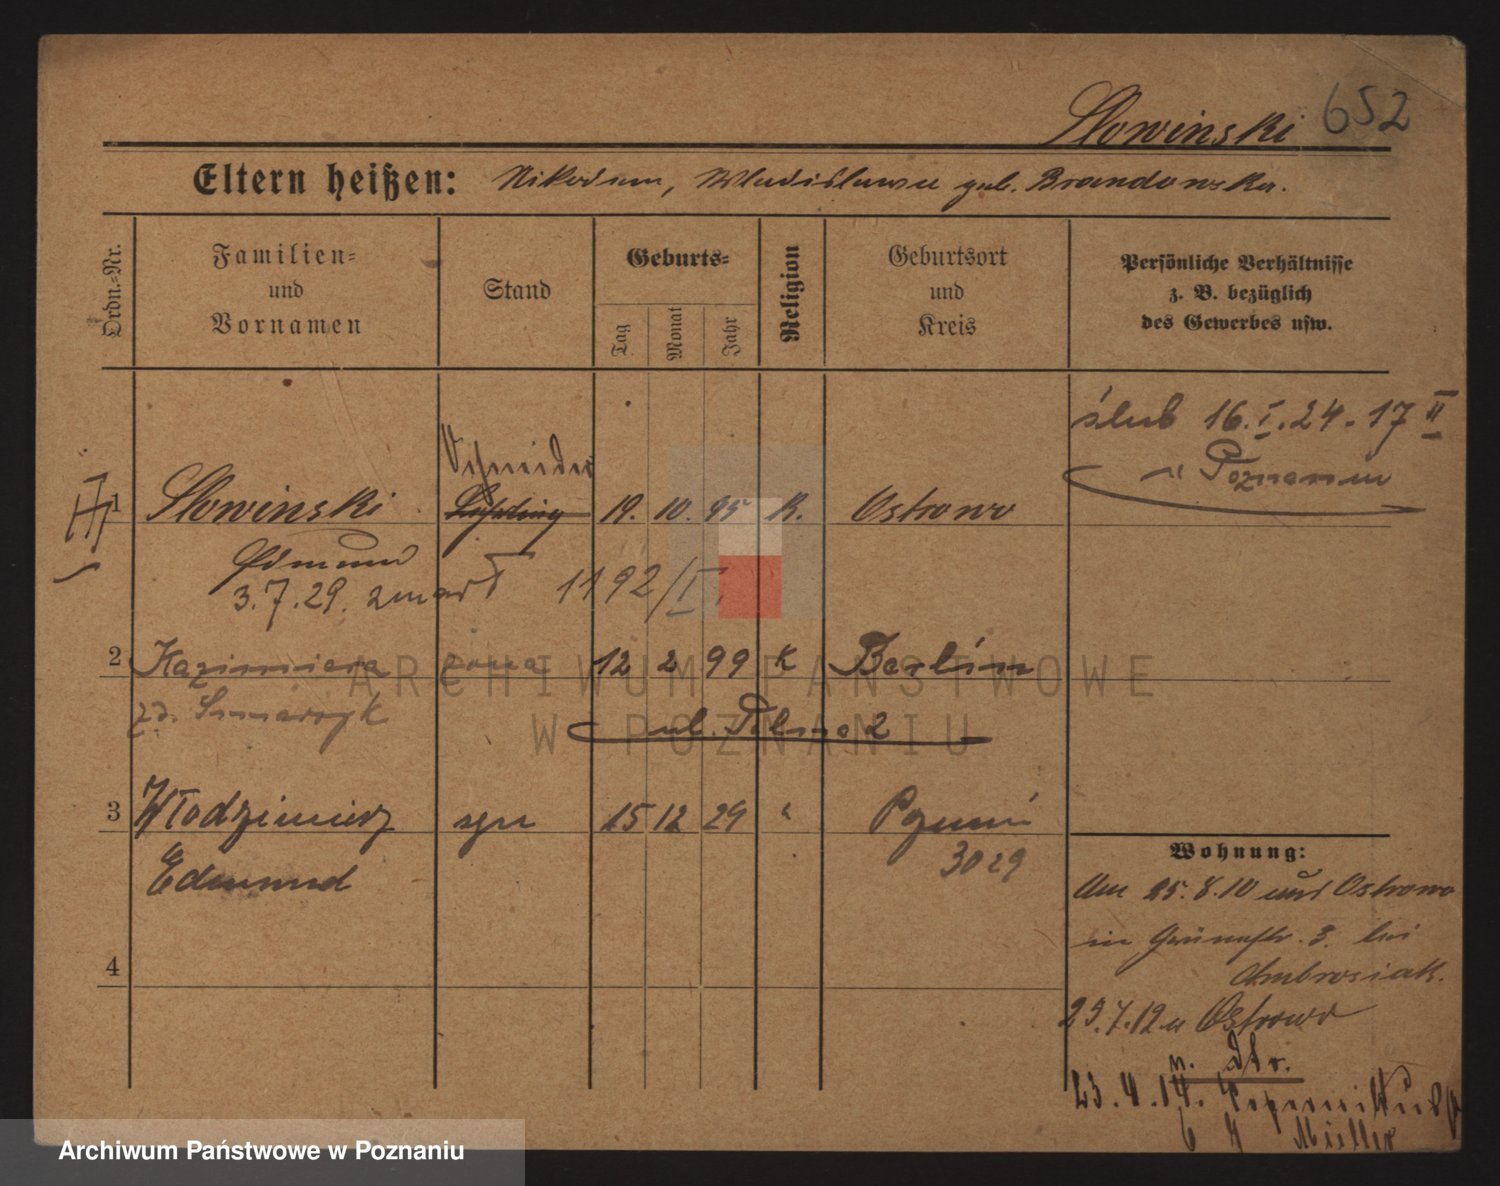 Slowinski 652
Eltern heißen: Nikodem, Wladislawa geb. Brandowska.
Ordn.=Nr.
Familien=
und
Vornamen
Stand
Geburts=
Tag
Monat
Jahr
Religion
Geburtsort
und
Kreis
Persönliche Verhältnisse
z. B. bezüglich
des Gewerbes usw.
ślub 16.I.24-17 II
w Poznaniu
Schneider
1 Slowinski Lehrling 19. 10. 95 K. Ostrowo
Edmund
3.7.29. zmarł 1192/I
2 Kazimiera żona 12 2 99 K Berlin
zd.
ul. 2
3 Włodzimierz syn 15 12 29 " Poznań
Edmund 3029
4
Wohnung:
Am 25.8.10 aus Ostrowo
in Grünestr. 3. bei
Ambrosiak.
23.7.12 n Ostrowo
n. Str.
23.4.14.
Müller
ARCHIWUM PAŃSTWOWE
W POZNANIU
Archiwum Państwowe w Poznaniu